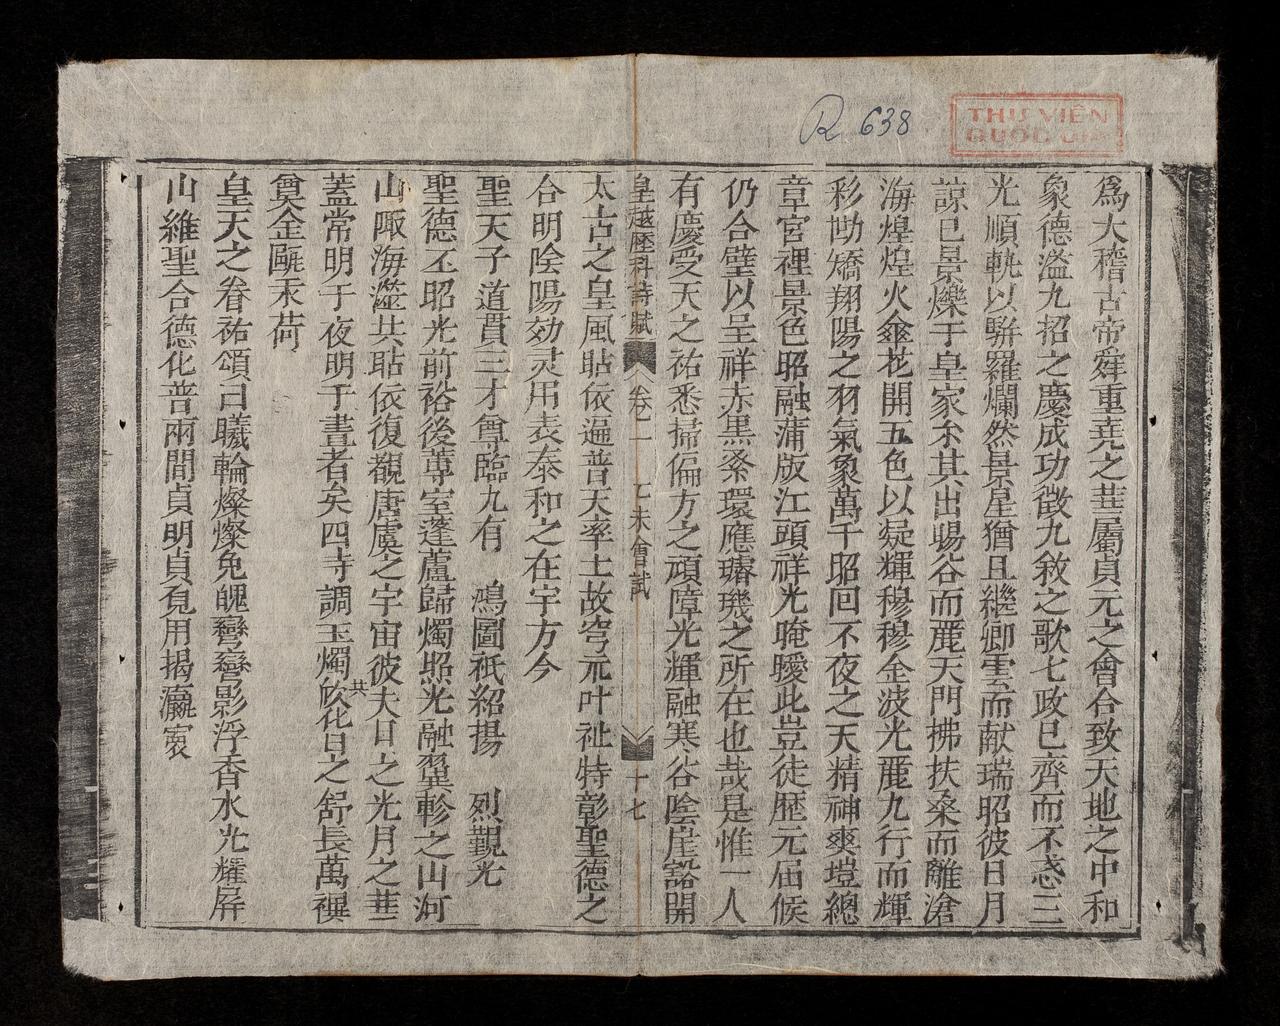 R 638
THƯ VIỆN
QUỐC GIA
為大稽古帝舜重堯之華屬貞元之會合致天地之中和
象德溢九招之慶成功徵九敘之歌七政已齊而不忒三
光順軌以騈羅爛然景星猶且繼卿雲而献瑞昭彼日月
諒已景爍于皇家尓其出暘谷而麗天門拂扶桑而離滄
海煌煌火傘花開五色以凝輝穆穆金波光麗九行而輝
彩勘矯翔陽之羽氣象萬千昭回不夜之天精神爽塏總
章宮裡景色昭融蒲版江頭祥光晻曖此豈徒歷元届候
仍合璧以呈祥赤黒絫環應璿璣之所在也哉是惟一人
有慶受天之祐悉掃偏方之頑障光輝融寒谷陰崖豁開
皇越歷科詩賦 卷二 丁未會試 十七
太古之皇風貼依遍普天率土故穹元叶祉特彰聖德之
合明陰陽効灵用表泰和之在宇方今
聖天子道貫三才尊臨九有 鴻圖祇紹揚 烈覲光
聖德丕昭光前裕後蔀室蓬蘆歸燭照光融翼軫之山河
山陬海澨共貼依復覩唐虞之宇宙彼夫日之光月之華
蓋常明于夜明于晝者矣四寺調玉燭欣共化日之舒長萬禩
奠金甌永荷
皇天之眷祐頌曰曦輪燦燦兔魄彎彎影浮香水光耀屏
山維聖合德化普兩間貞明貞覔用揭瀛寰